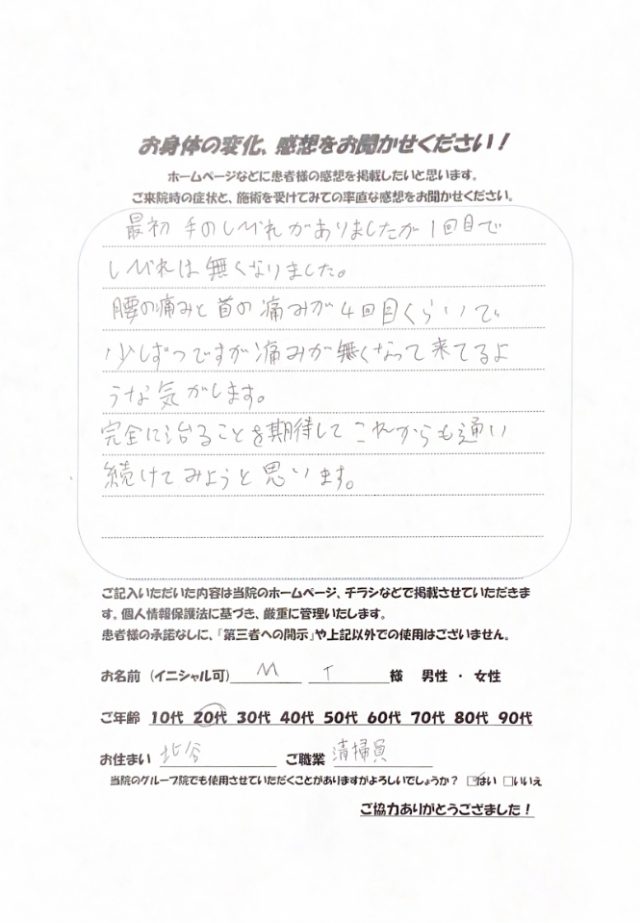 お身体の変化、感想をお聞かせください！
ホームページなどに患者様の感想を掲載したいと思います。
ご来院時の症状と、施術を受けてみての率直な感想をお聞かせください。
最初 手のしびれがありましたが1回目で
しびれは無くなりました。
腰の痛みと首の痛みが4回目くらいで
少しずつですが痛みが無くなって来てるよ
うな気がします。
完全に治ることを期待してこれからも通い
続けてみようと思います。
ご記入いただいた内容は当院のホームページ、チラシなどで掲載させていただきま
す。個人情報保護法に基づき、厳重に管理いたします。
患者様の承諾なしに、「第三者への開示」や上記以外での使用はございません。
お名前（イニシャル可） M T 様 男性 ・ 女性
ご年齢 10代 20代 30代 40代 50代 60代 70代 80代 90代
お住まい 北谷 ご職業 清掃員
当院のグループ院でも使用させていただくことがありますがよろしいでしょうか？ ☑はい □いいえ
ご協力ありがとうござました！